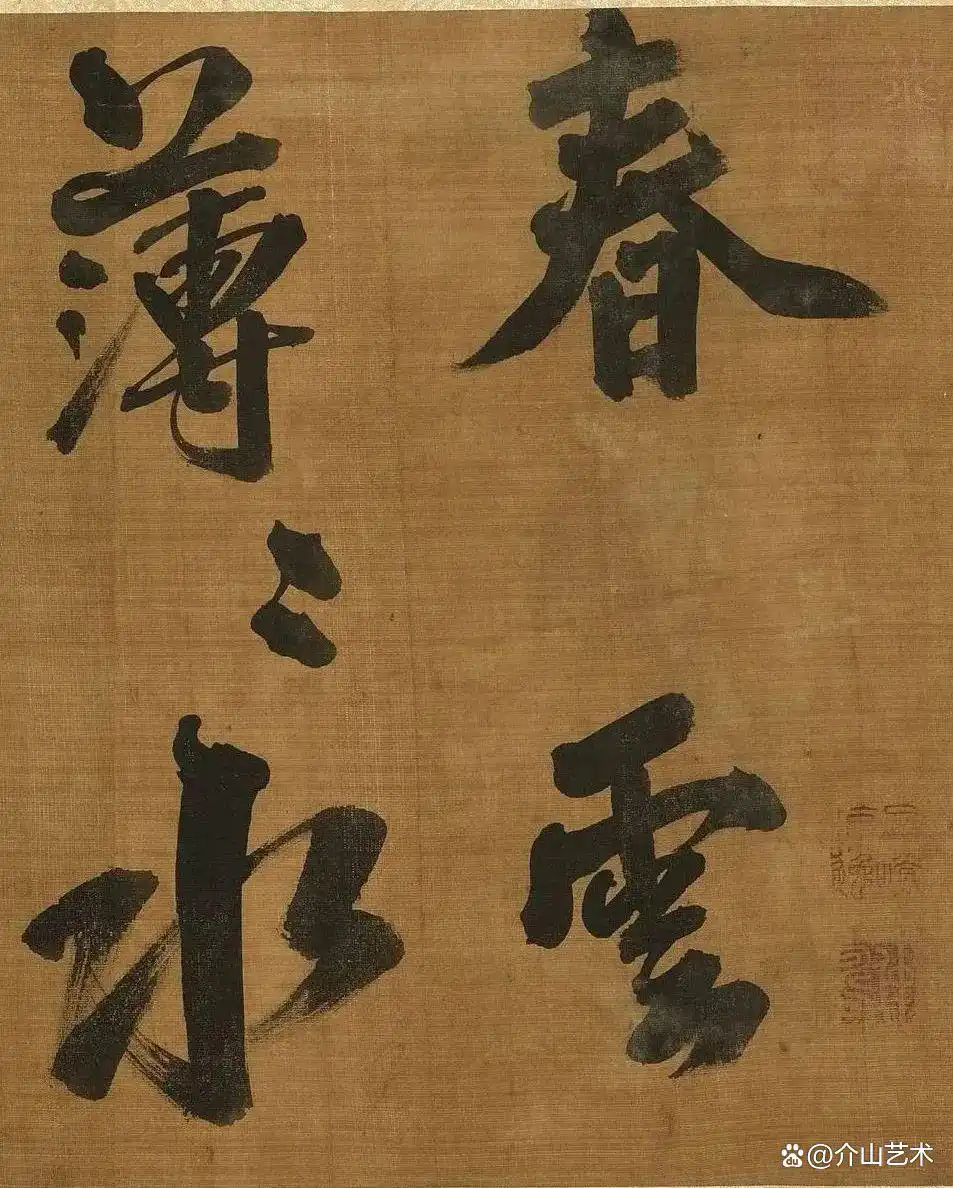 春雲
薄〻水
@介山艺术